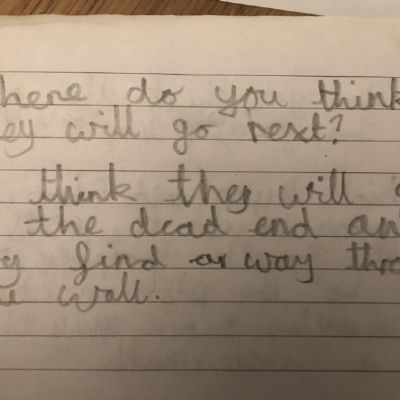 here do you think
ey will go next?
think they will
the dead end an
y find a way thro
e wall.